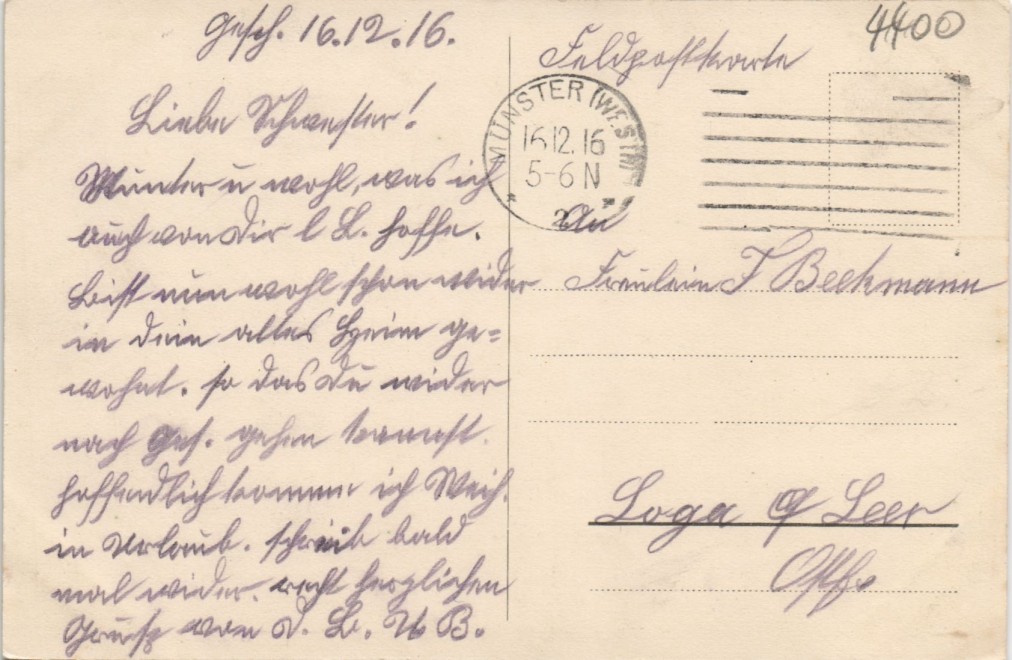 Gesch. 16.12.16.
Liebe Schwester!
Munter u wohl, was ich
auch von Dir l B. hoffe.
Bist nun wohl schon wider
in dein altes Heim ge=
wohnt. so das Du wider
nach gehen kannst.
hoffendlich komme ich Weih.
in Urlaub. schreib bald
mal wider. recht herzlichen
Gruß von d. B.
4400
Feldpostkarte
MÜNSTER (WESTF)
16.12.16
5-6 N
* 2 *
An
Freulein F Beekmann
Loga b/ Leer
Ostfr